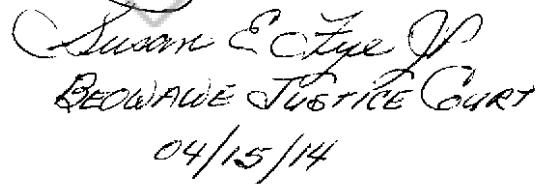 Susan E Fye JP
BEOWAWE JUSTICE COURT
04/15/14